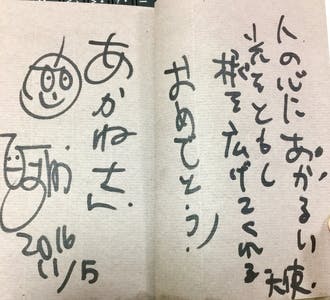 人の心にあかるい
光をともし
輪を広げてくれる
天使.
おめでとう!
あかねさん
2016
11/5